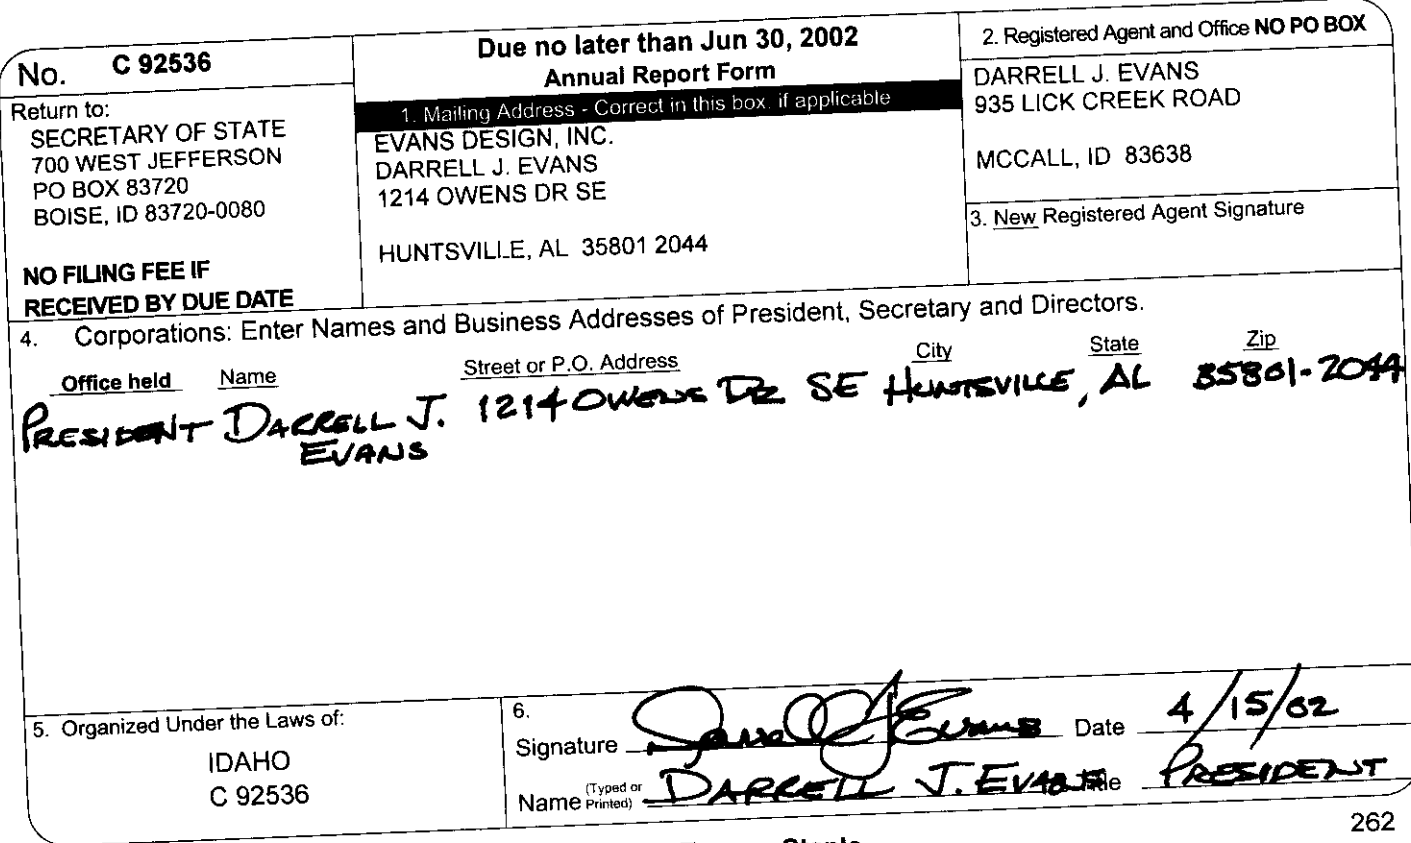 No. C 92536
Return to:
SECRETARY OF STATE
700 WEST JEFFERSON
PO BOX 83720
BOISE, ID 83720-0080
NO FILING FEE IF
RECEIVED BY DUE DATE
Due no later than Jun 30, 2002
Annual Report Form
1. Mailing Address - Correct in this box, if applicable
EVANS DESIGN, INC.
DARRELL J. EVANS
1214 OWENS DR SE
HUNTSVILLE, AL 35801 2044
2. Registered Agent and Office NO PO BOX
DARRELL J. EVANS
935 LICK CREEK ROAD
MCCALL, ID 83638
3. New Registered Agent Signature
4. Corporations: Enter Names and Business Addresses of President, Secretary and Directors.
Office held Name Street or P.O. Address City State Zip
PRESIDENT DARRELL J. 1214 OWENS DR SE HUNTSVILLE, AL 35801-2044
EVANS
5. Organized Under the Laws of:
IDAHO
C 92536
6.
Signature Darrell J Evans Date 4/15/02
Name (Typed or Printed) DARRELL J. EVANS Title PRESIDENT
262